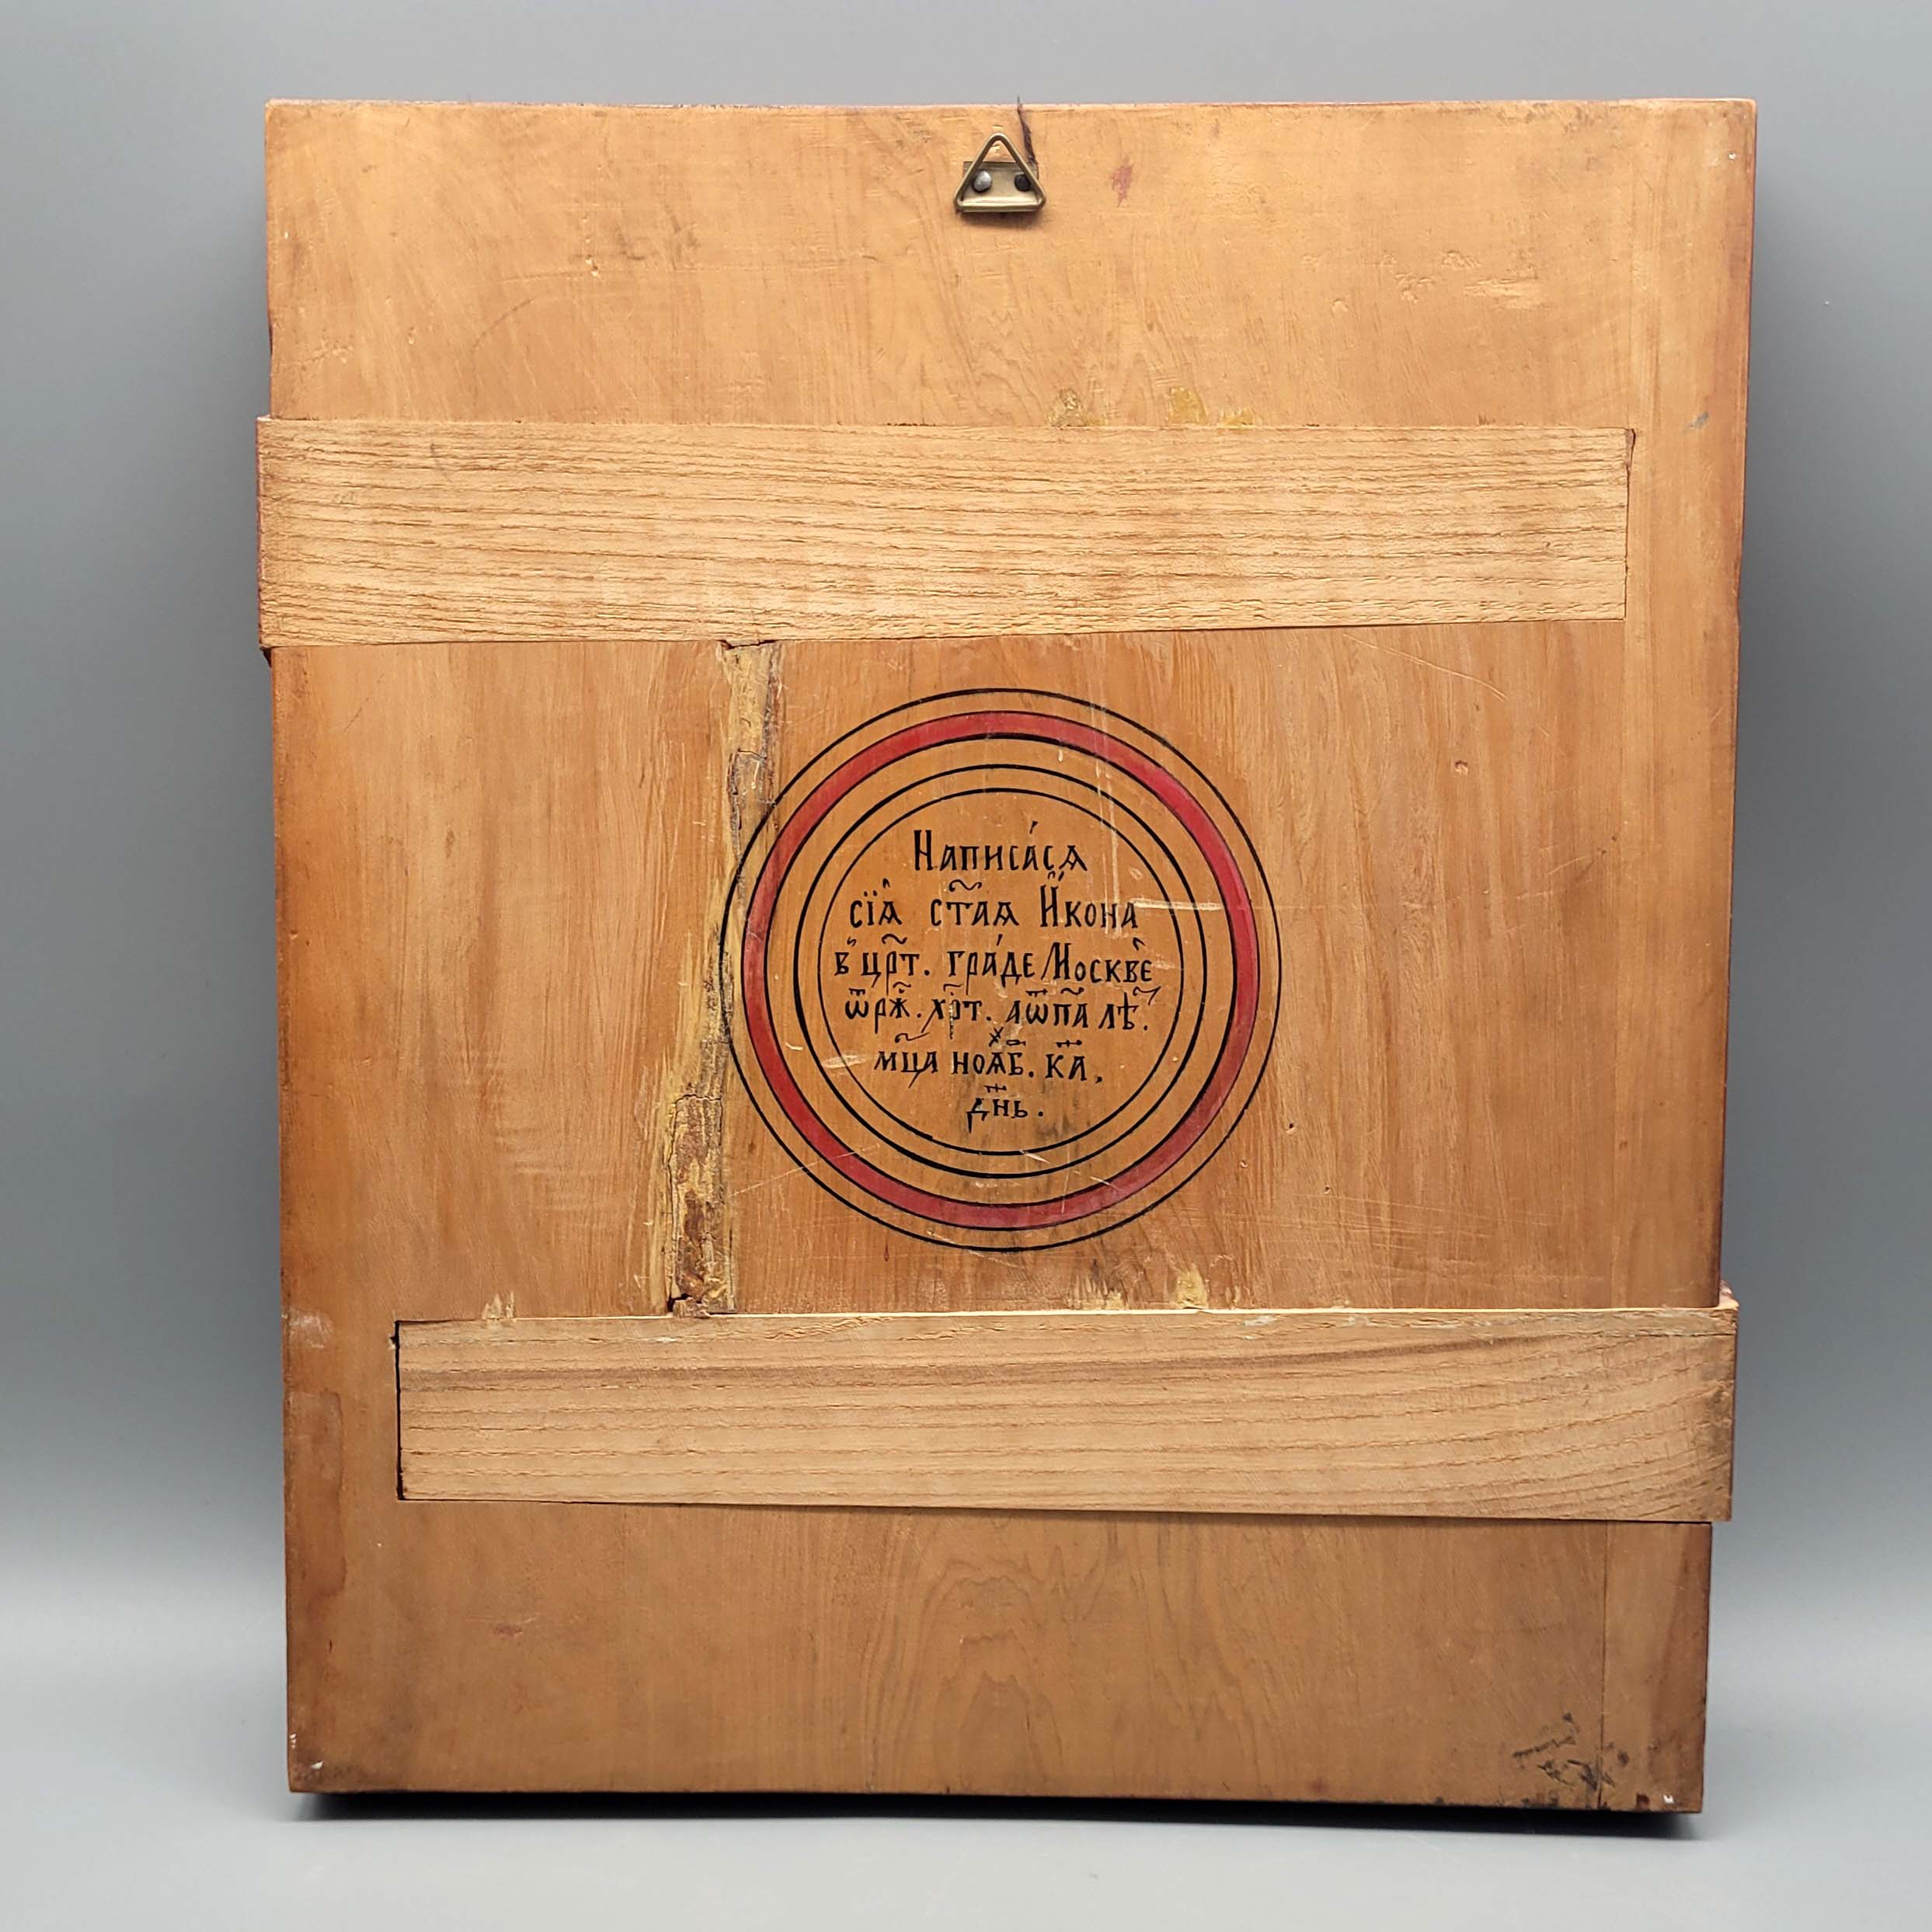 Написа́сѧ
сїѧ̀ ст҃аѧ И҆́кона
в҆ цр҃т. гра́де Москвѐ
ѿ рж҃. хр҃т. аѿп҃а лѣ҃.
мц҃а ноѧб. к҃а,
дн҃ь.